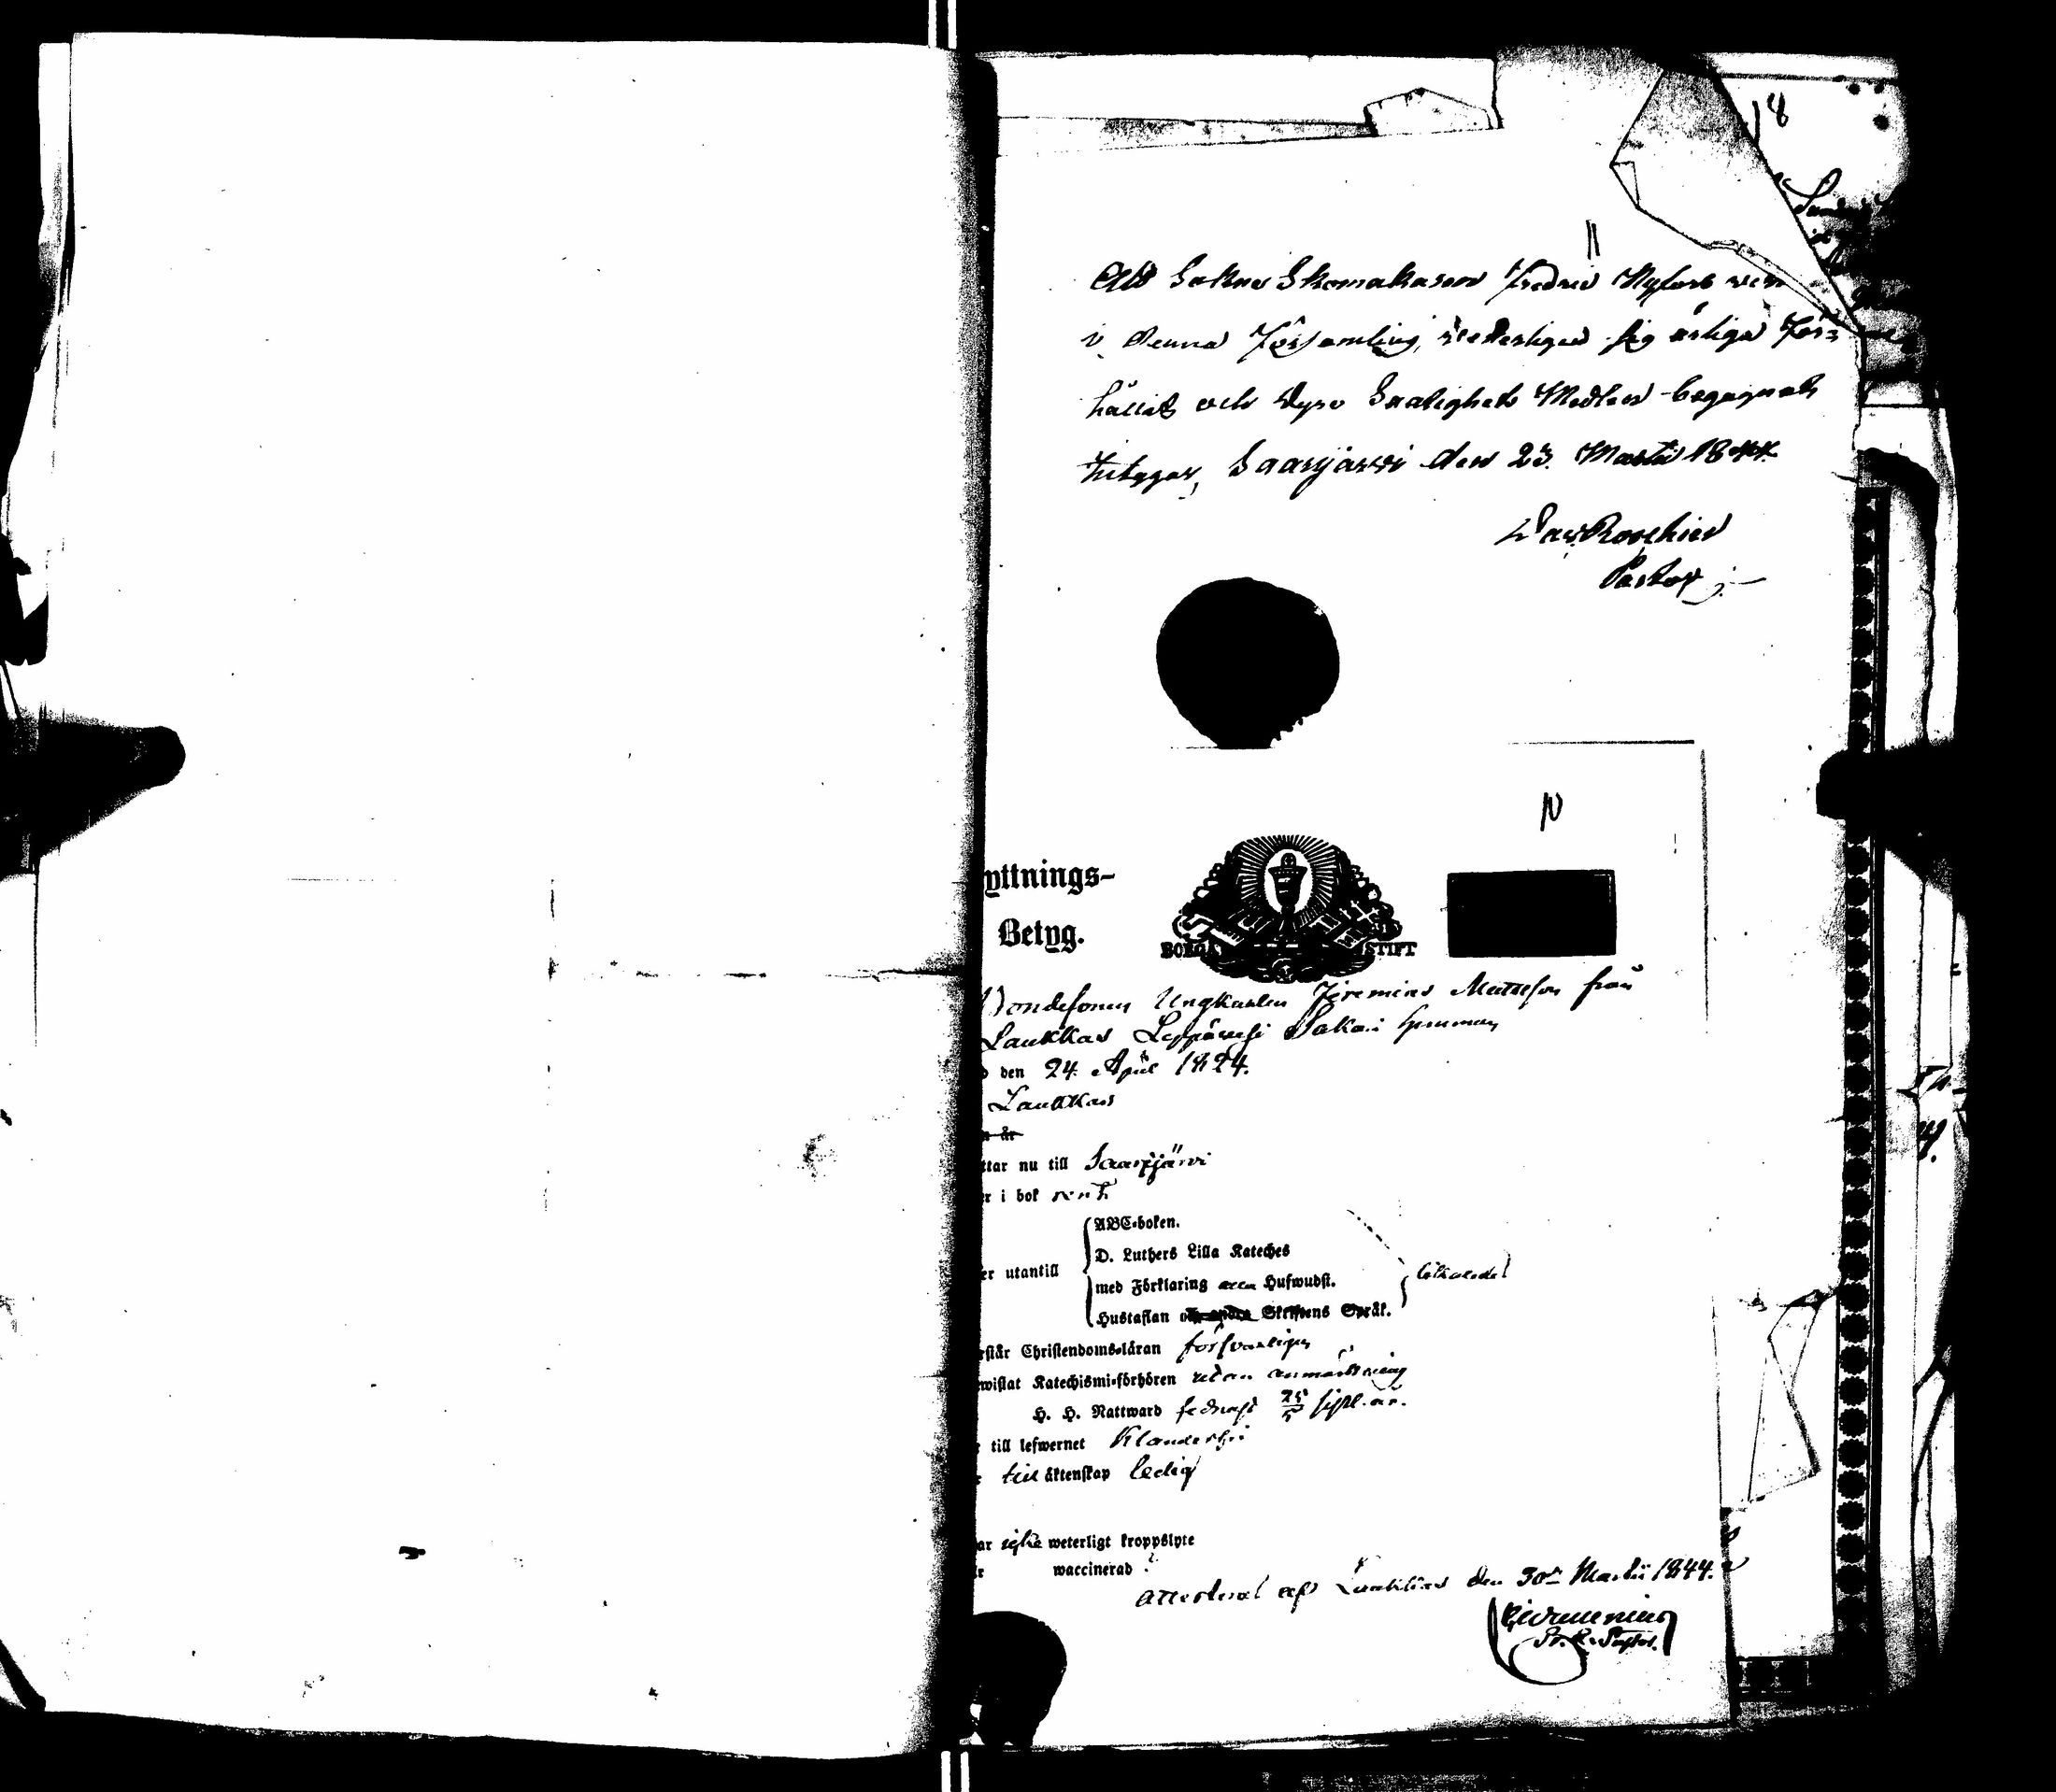 11
Att Sokne Skomakaren Fredric Nyfort
i denna Församling, sig ärliga för=
hållit och Dyre Saalighets Medlen begagnat
intygar, Saarijärvi den 23. Martii 1844.
Pastor
18
10
yttnings-
Betyg.
BORGÅ STIFT
Bondesonen Ungkarlen Jeremias Mattsson från
Laukkas Leppävesi Sakari hemman
den 24. April 1824.
Laukkas
n år
ttar nu till Saarijärvi
r i bok rent
ABC-boken.
D. Luthers Lilla Kateches
er utantill
med Förklaring alla Hufwudst.
Hustaflan och andra Skriftens Språk.
rstår Christendoms-läran försvarligen
wistat Katechismi-förhören utan anmärkning
H. H. Nattward sednast 25/5 sistl. år.
till lefwernet Klanderfri
till äktenskap ledig
ar icke weterligt kroppslyte
r waccinerad ?
Attesteras af Laukkas den 30de Martii 1844.